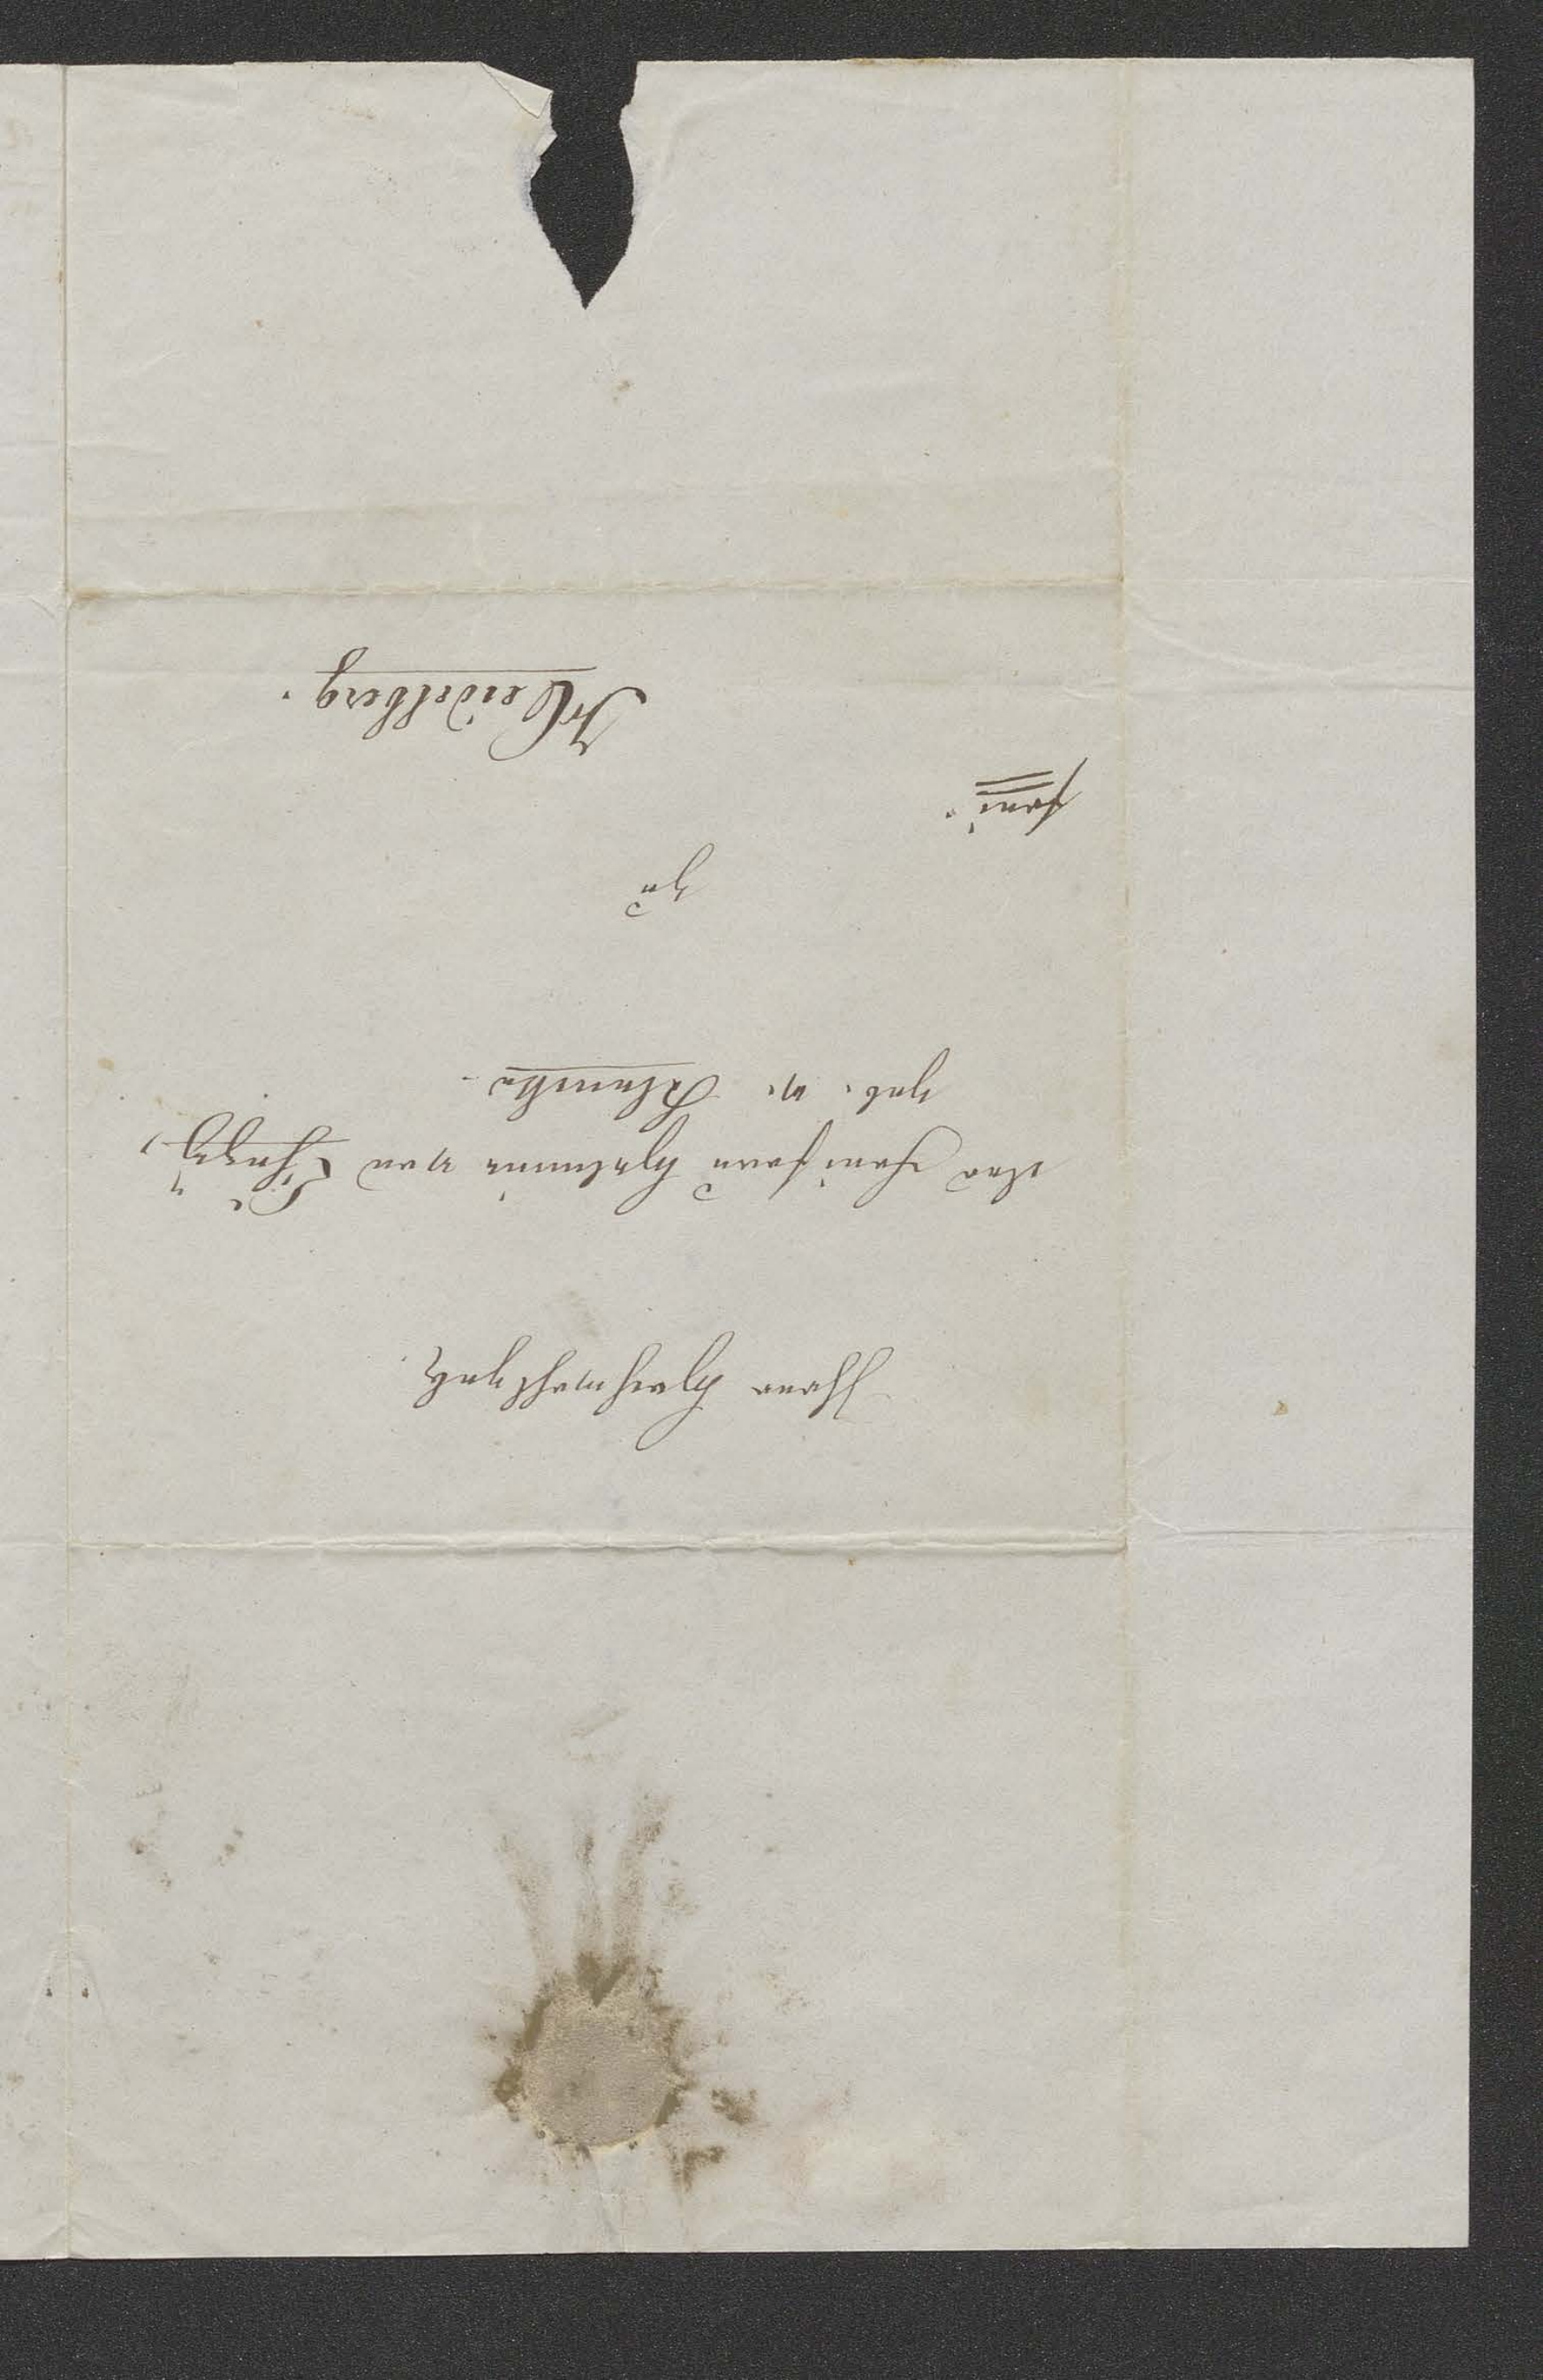 Ihrer Hochwohlgeb.
der Freifrau Helmina von Chézÿ,
geb. v. Klencke.
zu
frei.
Heidelberg.